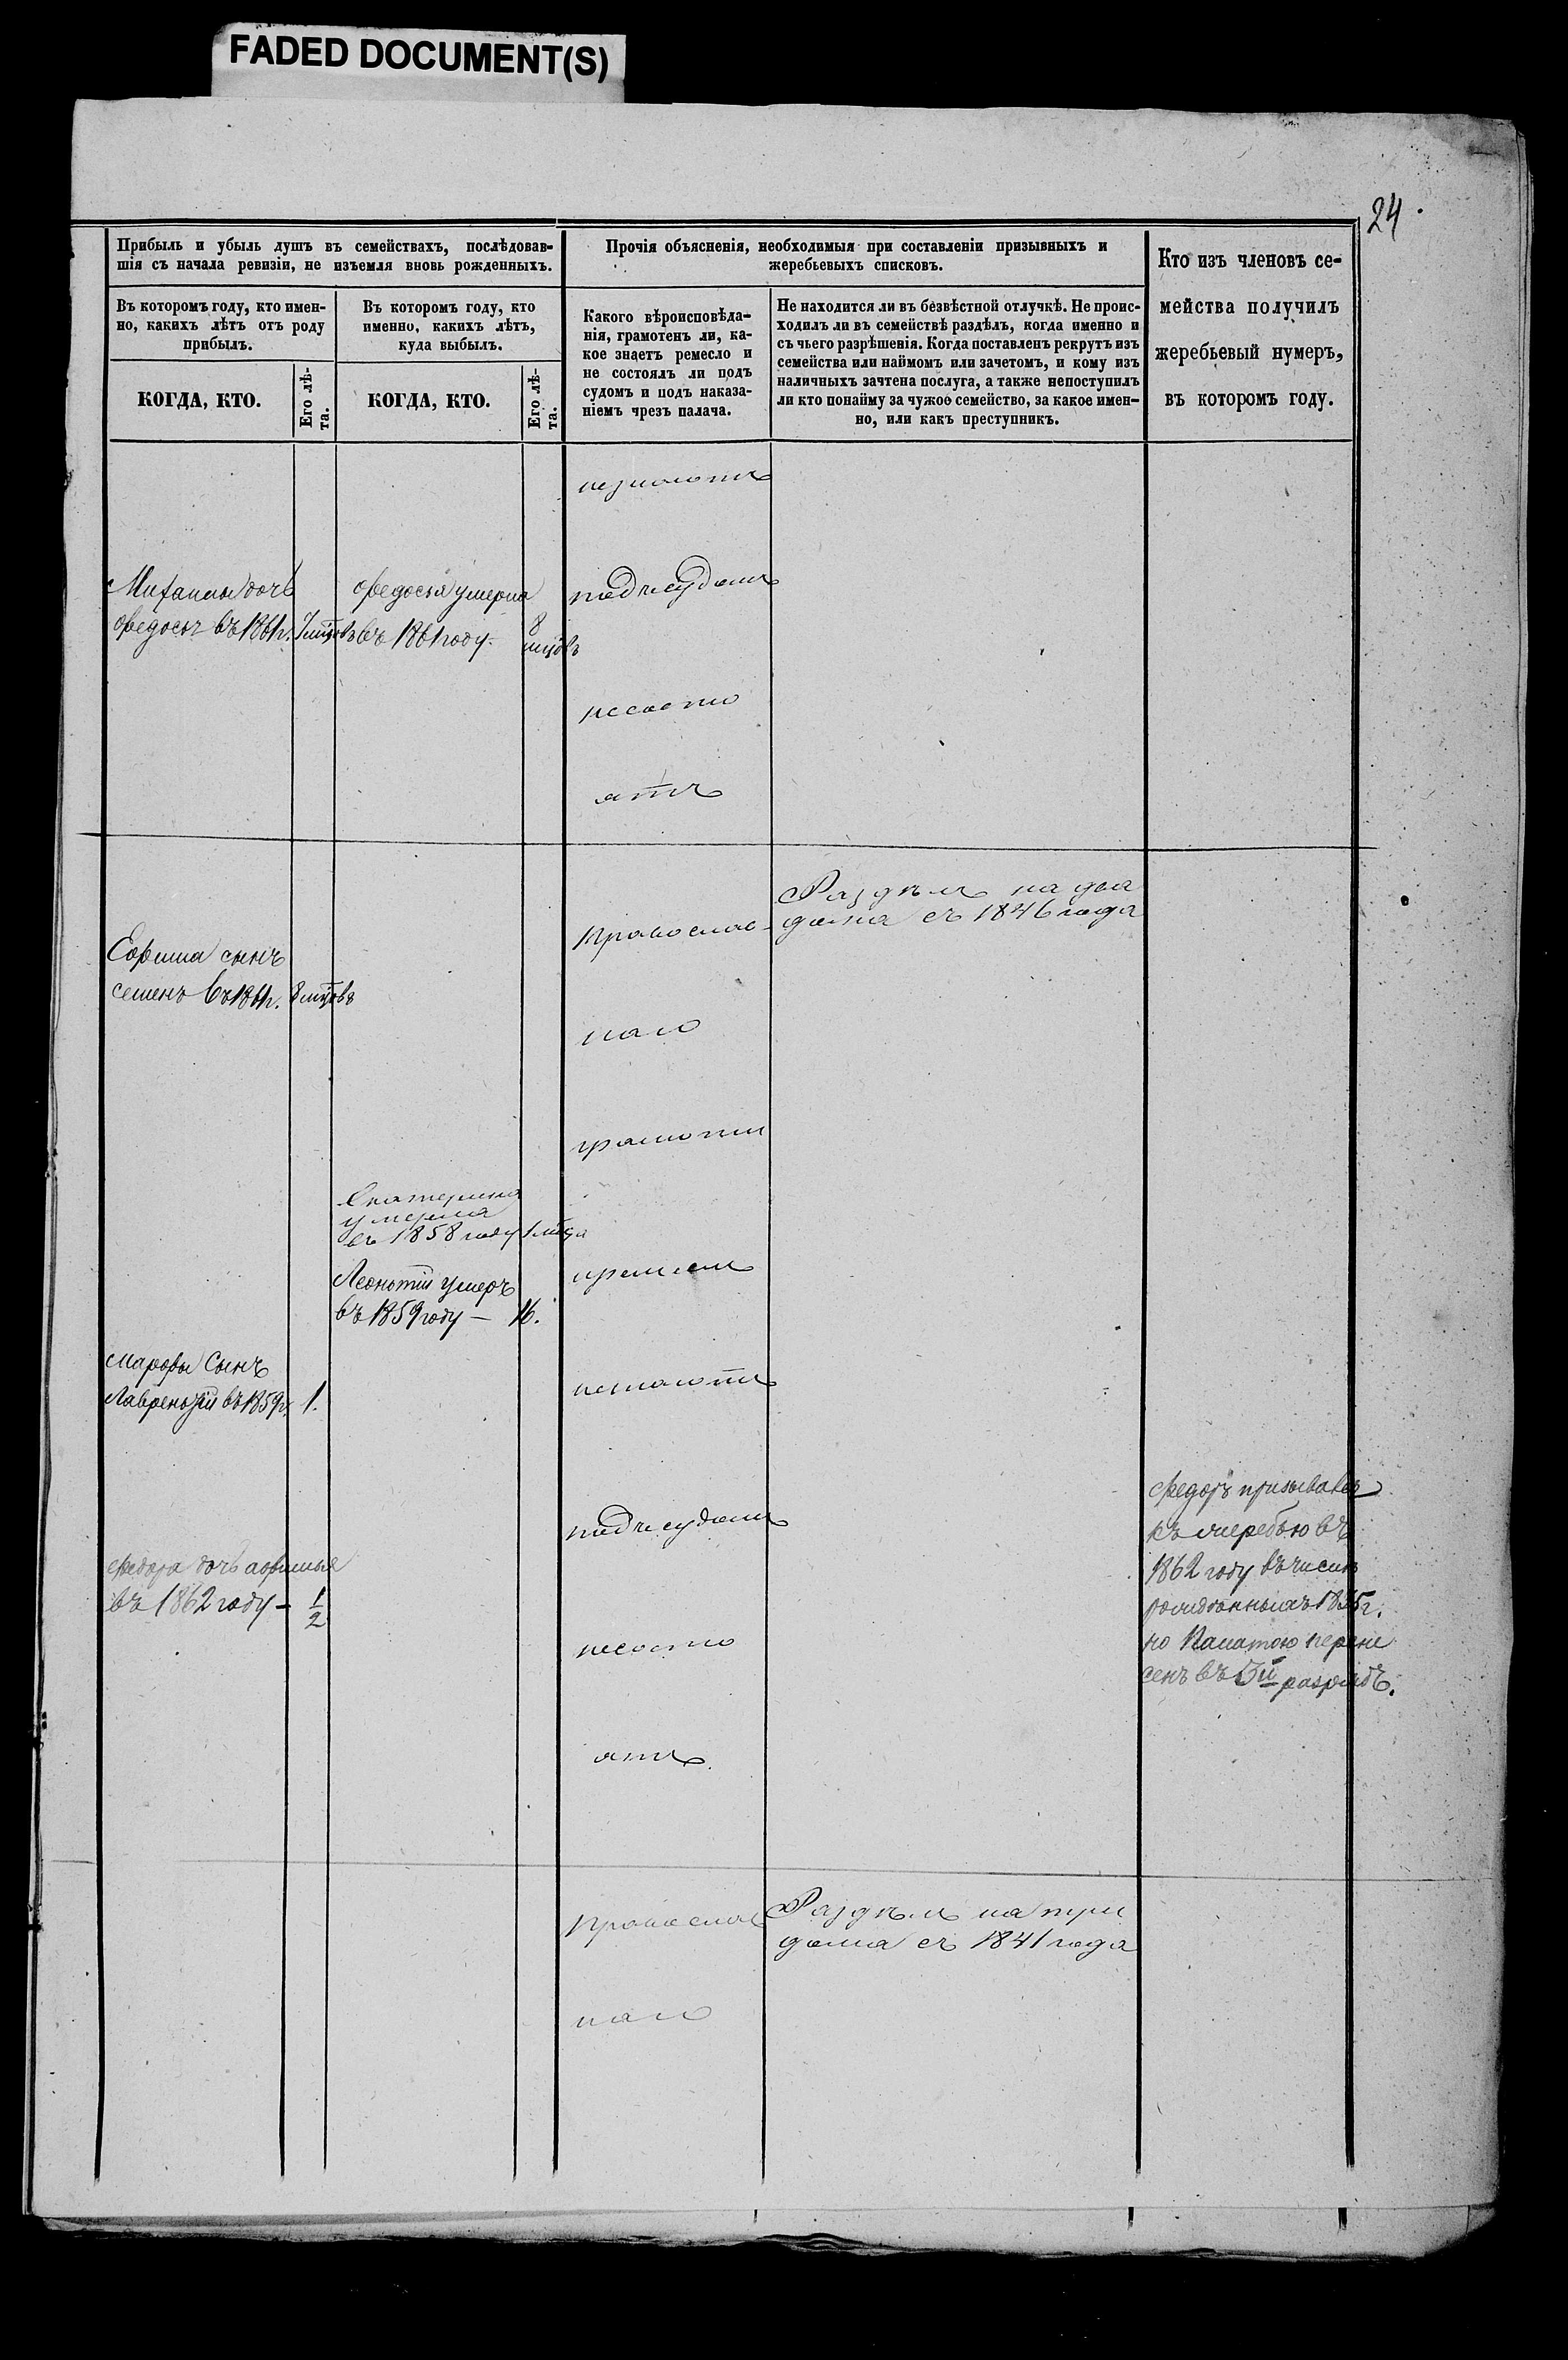 FADED DOCUMENT(S)
24.
Прибыль и убыль душъ въ семействахъ, послѣдовав-
шія съ начала ревизіи, не изъемля вновь рожденныхъ.
Въ которомъ году, кто имен-
но, какихъ лѣтъ отъ роду
прибылъ.
Въ которомъ году, кто
именно, какихъ лѣтъ,
куда выбылъ.
КОГДА, КТО.
Его лѣ-
та.
КОГДА, КТО.
Его лѣ-
та.
Прочія объясненія, необходимыя при составленіи призывныхъ и
жеребьевыхъ списковъ.
Какого вѣроисповѣда-
нія, грамотенъ ли, ка-
кое знаетъ ремесло и
не состоялъ ли подъ
судомъ и подъ наказа-
ніемъ чрезъ палача.
Не находится ли въ безвѣстной отлучкѣ. Не проис-
ходилъ ли въ семействѣ раздѣлъ, когда именно и
съ чьего разрѣшенія. Когда поставленъ рекрутъ изъ
семейства или наймомъ или зачетомъ, и кому изъ
наличныхъ зачтена послуга, а также непоступилъ
ли кто понайму за чужое семейство, за какое имен-
но, или какъ преступникъ.
Кто изъ членовъ се-
мейства получилъ
жеребьевый нумеръ,
въ которомъ году.
незнаютъ
Михаилы дочь
Ѳедосья въ 1861г. 7 мцовъ
Ѳедосья умерла
въ 1861 году. 8
мцовъ
подъ судомъ
несосто
ятъ
Раздѣлъ на два
дома съ 1846 года
Православ-
Ефима сынъ
Семенъ въ 1861г. 8 мцовъ
наго
грамоти
Екатерина
умерла
въ 1858 году
Леонтій умеръ
въ 1859 году — 16.
иремесл
Марфы Сынъ
Лаврентій въ 1859г. 1.
незнаютъ
подъ судомъ
Ѳедора дочь
въ 1862 году — 1/2
несосто
ятъ.
Ѳедоръ призывался
къ жеребью въ
1862 году въ числѣ
рожденныхъ 1835г.
но Палатою перене
сенъ въ 3й разрядъ.
Православ
Раздѣлъ на три
дома съ 1841 года
наго